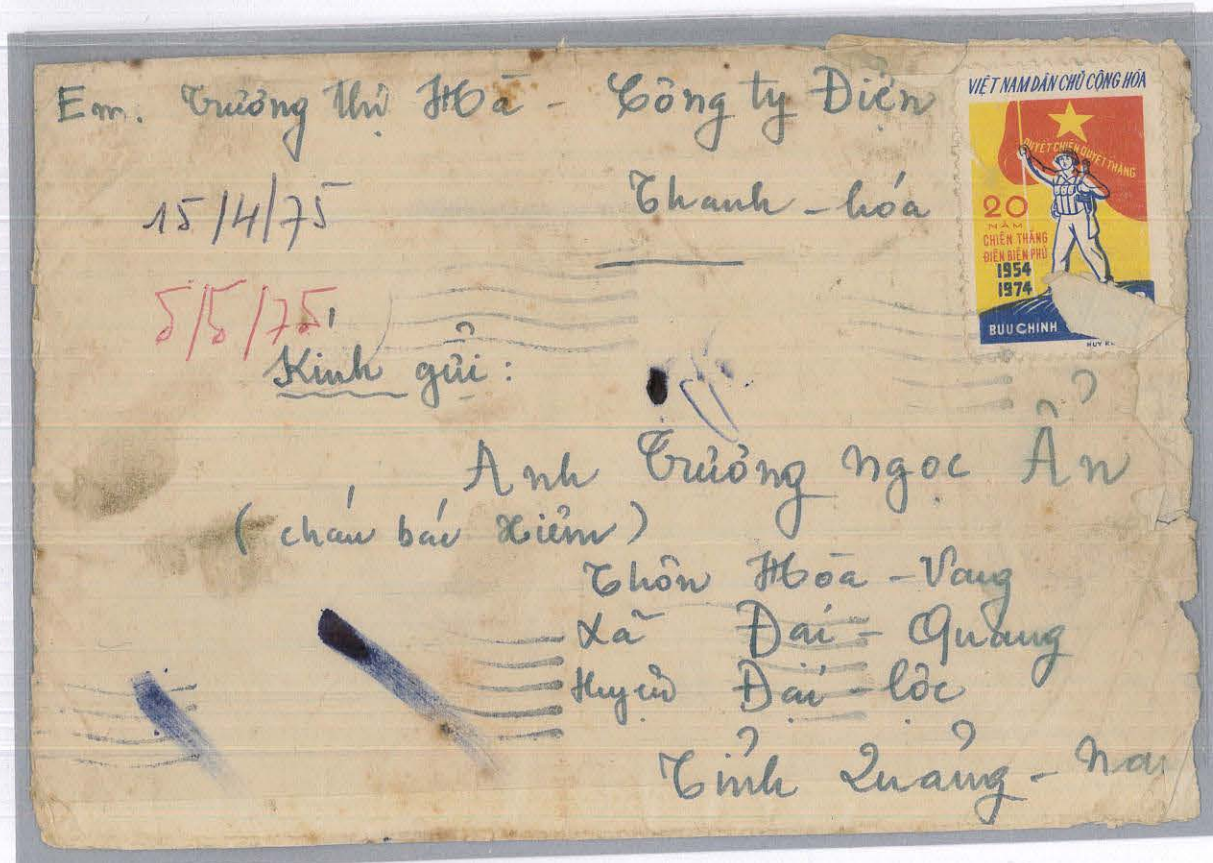 Em. Trương thị Hà - Công ty Điện
Thanh - hóa
15/4/75
5/5/75
Kính gửi:
Anh Trương Ngọc Ẩn
(cháu bác Xiêm)
Thôn Hòa - Vang
Xã Đại - Quang
Huyện Đại - lộc
Tỉnh Quảng - Na
VIỆT NAM DÂN CHỦ CỘNG HÒA
QUYẾT CHIẾN QUYẾT THẮNG
20
NĂM
CHIẾN THẮNG
ĐIỆN BIÊN PHỦ
1954
1974
BƯU CHÍNH